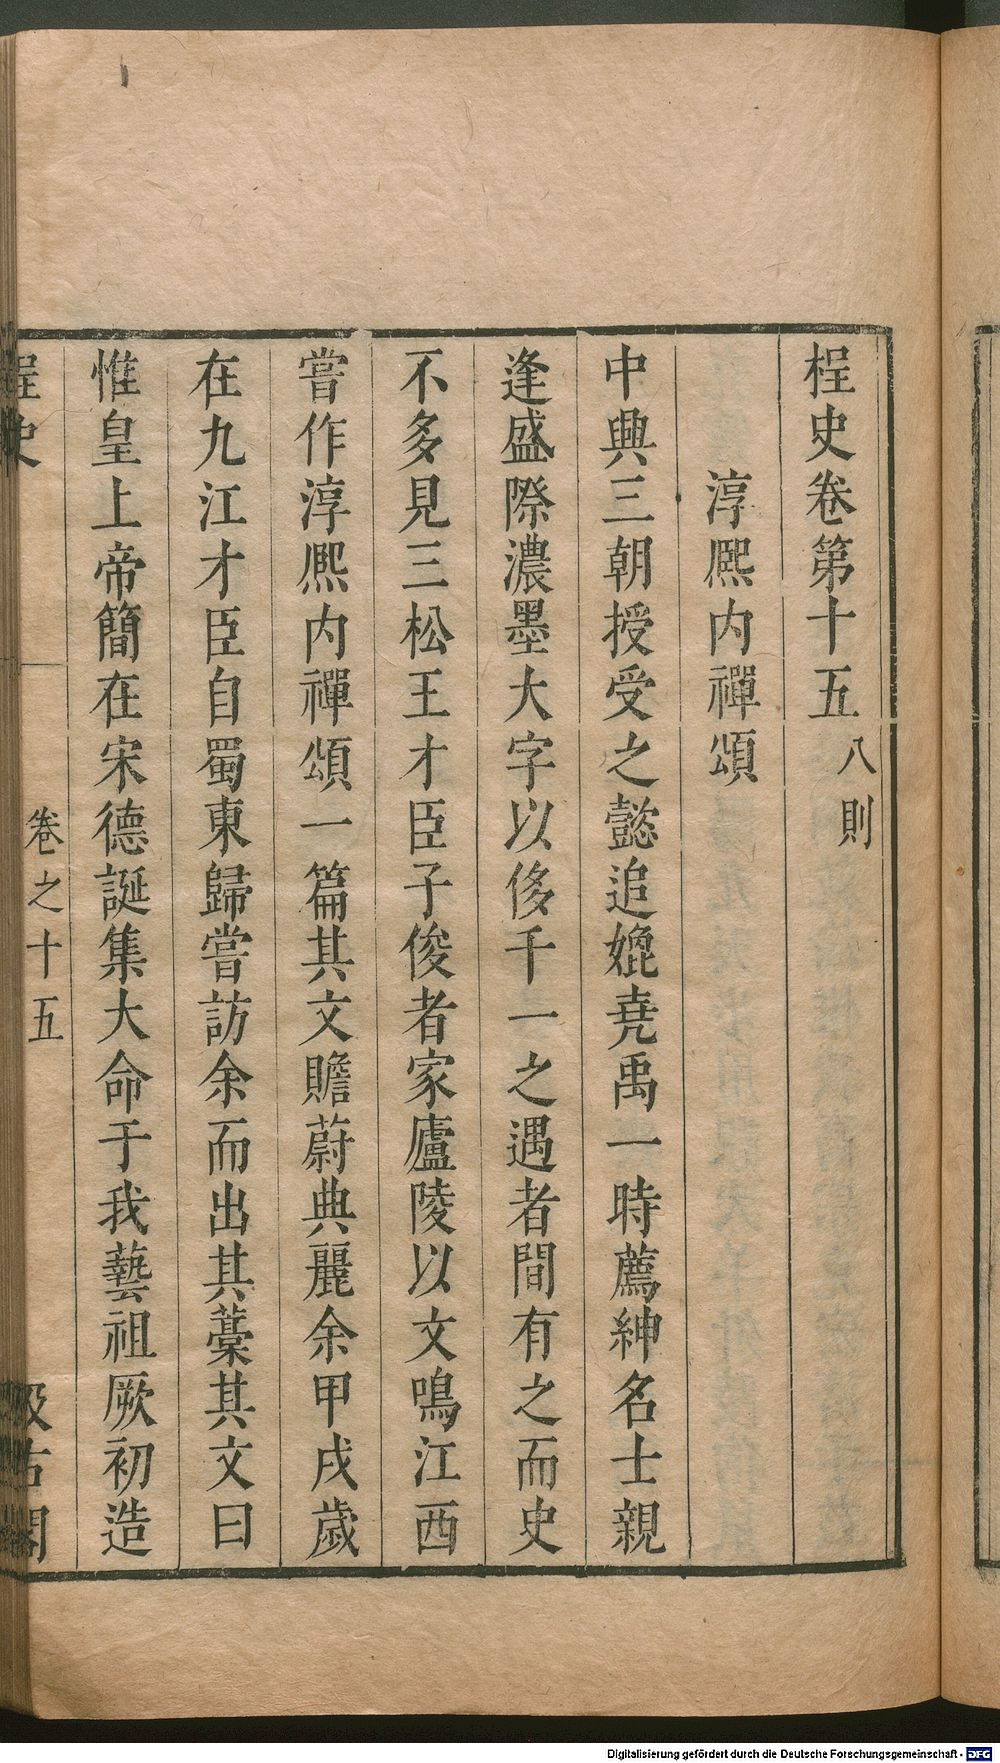 桯史卷第十五 八則
淳熈内禪頌
中興三朝授受之懿追媲堯禹一時薦紳名士親
逢盛際濃墨大字以侈千一之遇者間有之而史
不多見三松王才臣子俊者家廬陵以文鳴江西
嘗作淳熈内禪頌一篇其文贍蔚典麗余甲戌歲
在九江才臣自蜀東歸嘗訪余而出其藁其文曰
惟皇上帝簡在宋德誕集大命于我藝祖厥初造
桯史 卷之十五 汲古閣
Digitalisierung gefördert durch die Deutsche Forschungsgemeinschaft - DFG